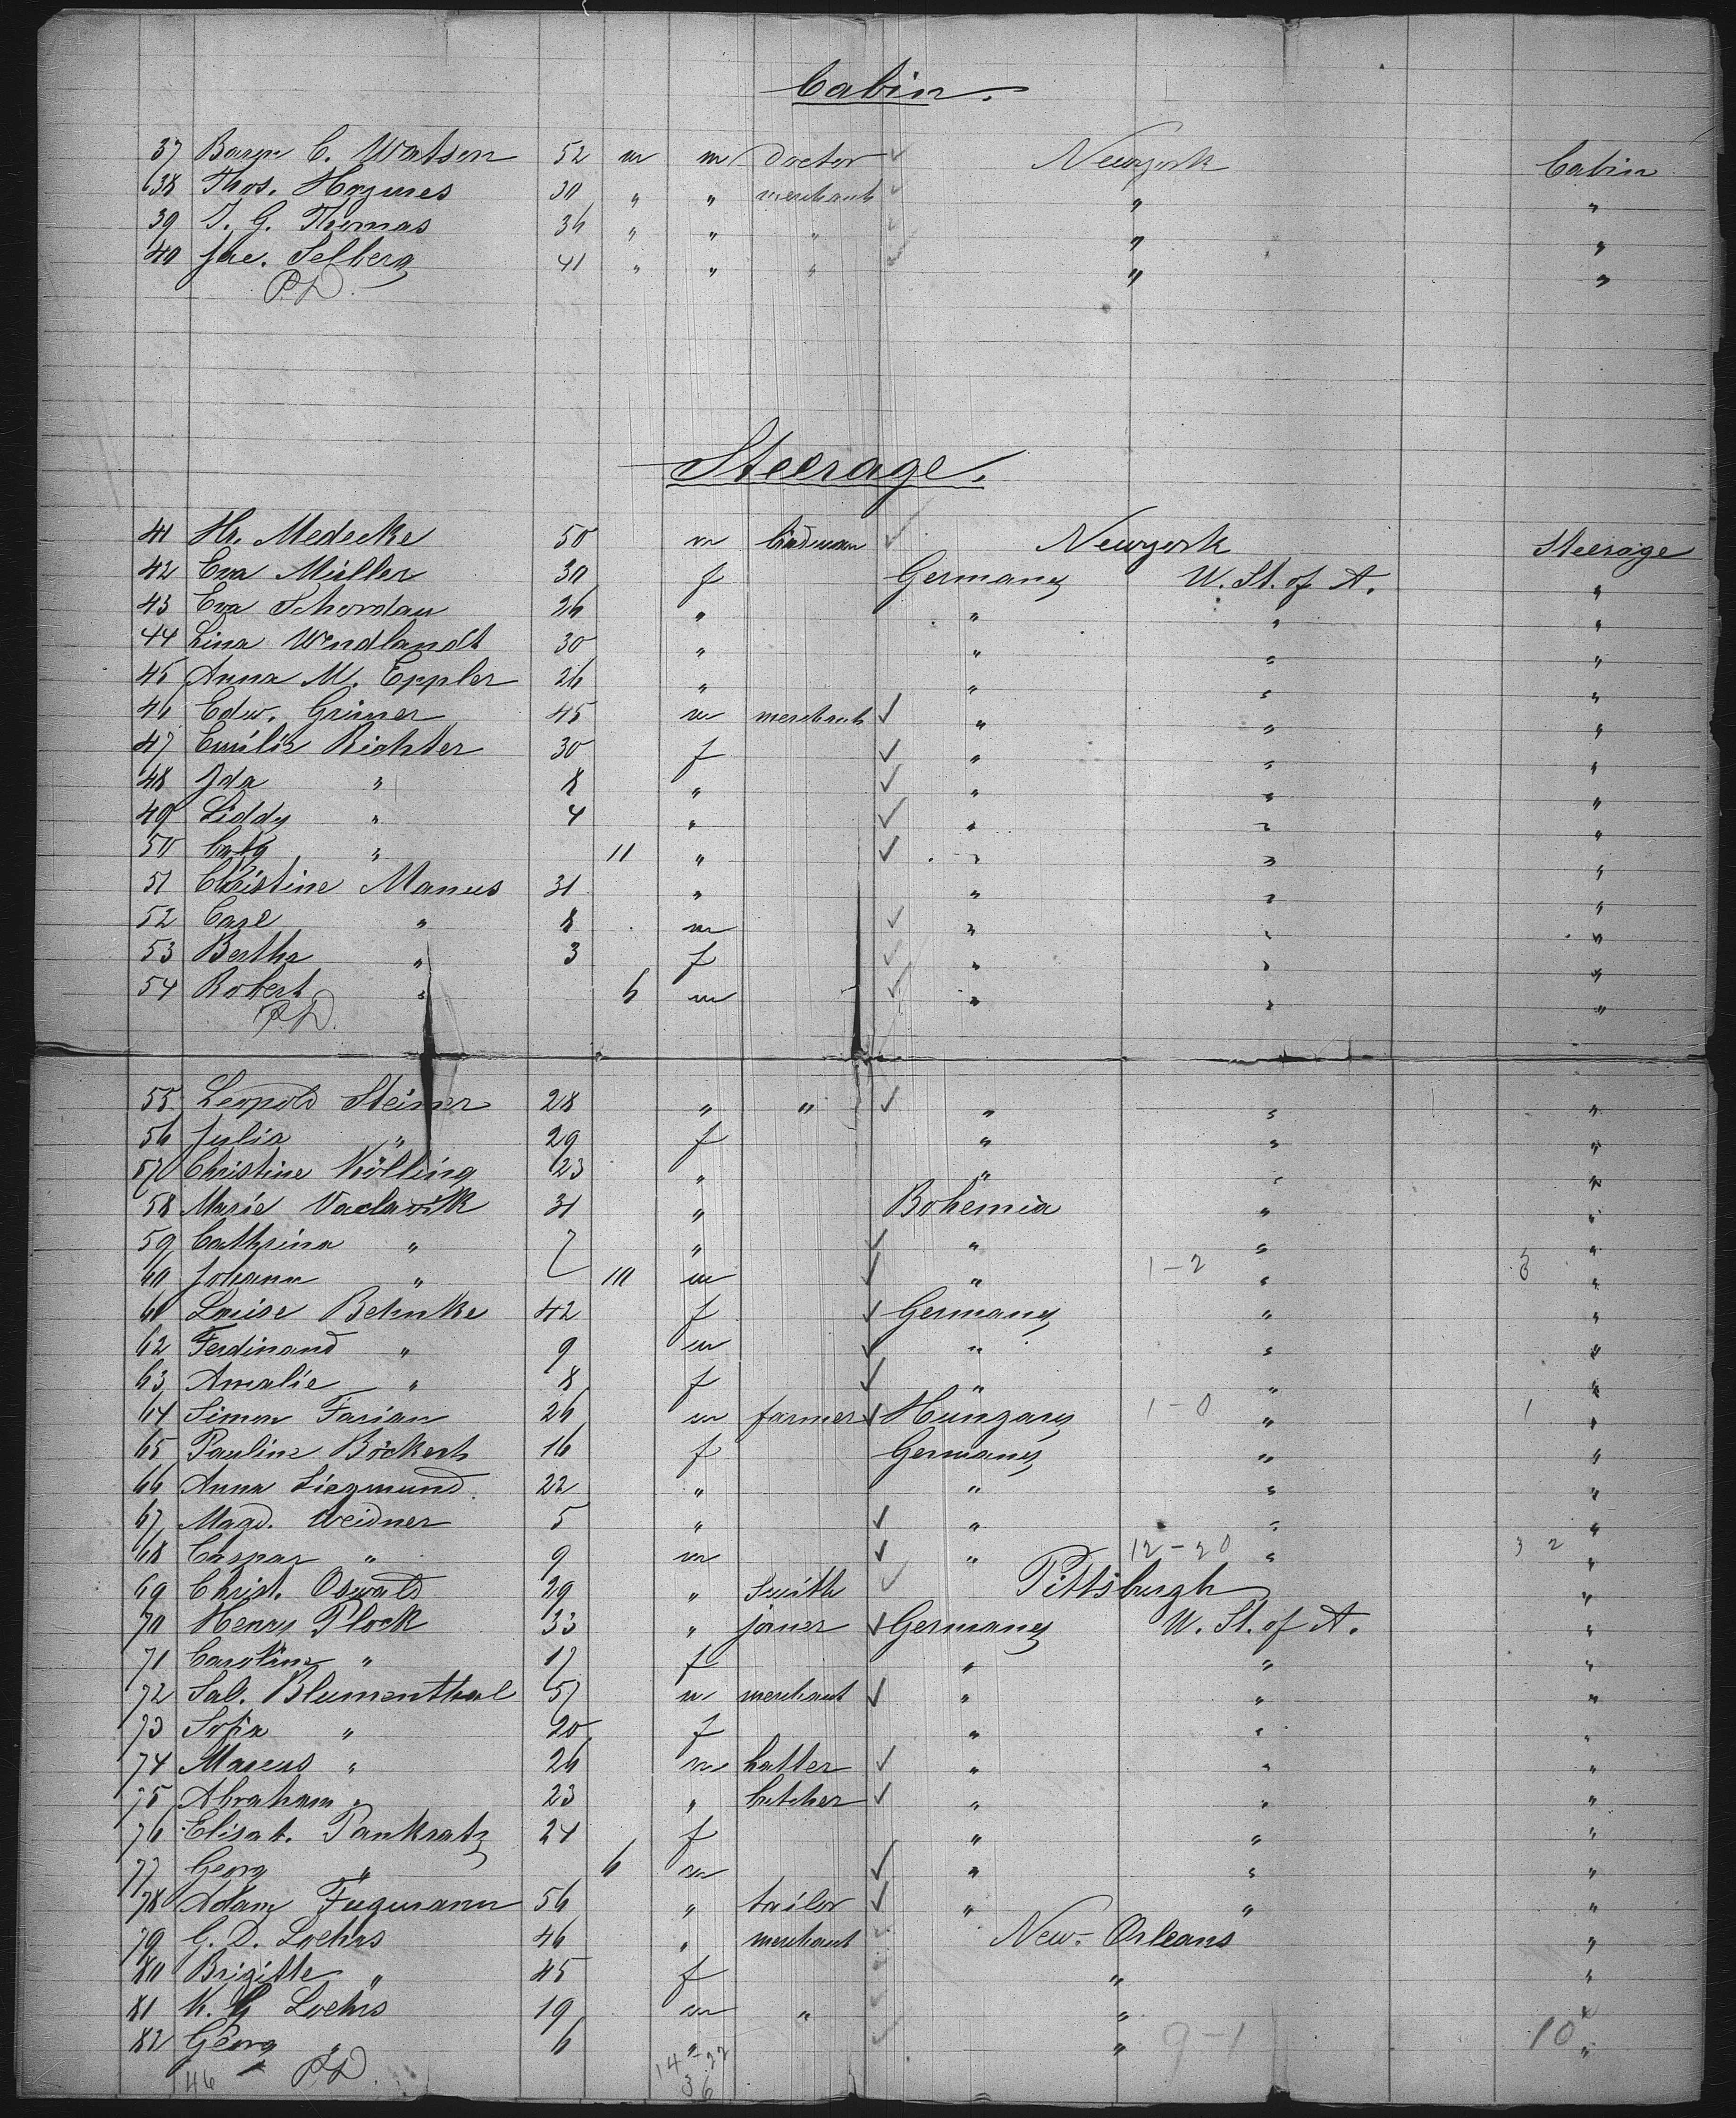 Cabin.
37 C. Watson 52 m m doctor ✓ Newyork Cabin
38 Thos. Haymes 30 " " merchant ✓ " "
39 J. G. Thomas 36 " " " ✓ " "
40 Jac. Selberg 41 " " " ✓ " "
P.D.
Steerage.
41 Hr. Medecke 50 m ✓ Newyork Steerage
42 Eva Müller 30 f Germany U. St. of A. "
43 Eva Schordau 26 " " " "
44 Lina Wendlandt 30 " " " "
45 Anna M. Eppler 26 " " " "
46 Edw. Grüner 45 m merchant ✓ " " "
47 Emilie Richter 30 f ✓ " " "
48 Ida " 8 " ✓ " " "
49 Liddy " 4 " ✓ " " "
50 " 11 " ✓ " " "
51 Christine Manus 31 " " " "
52 Carl " 8 m ✓ " " "
53 Bertha " 3 f ✓ " " "
54 Robert " 6 m ✓ " " "
P.D.
55 Leopold Steiner 28 " " ✓ " " "
56 Julia " 29 f " " "
57 Christine Kölling 23 " " " "
58 Marie Vaclawik 31 " Bohemia " "
59 Cathrina " 7 " ✓ " " "
60 Johann " 10 m ✓ " 1-2 " 3 "
61 Louise Behnke 42 f ✓ Germany " "
62 Ferdinand " 9 m ✓ " " "
63 Amalie " 8 f ✓ " " "
64 Simon Farian 26 m farmer ✓ Hungary 1-0 " 1 "
65 Pauline Böckert 16 f Germany " "
66 Anna Siegmund 22 " " " "
67 Magd. Weidner 5 " ✓ " " "
68 Caspar " 9 m ✓ " 12-20 " 32 "
69 Christ. Oswald 29 " Smith ✓ Pittsburgh "
70 Henry Plock 33 " joiner ✓ Germany U. St. of A. "
71 Caroline " 17 f " " "
72 Sal. Blumenthal 57 m merchant ✓ " " "
73 Sofia " 20 f " " "
74 Marcus " 26 m hatter ✓ " " "
75 Abraham " 23 " butcher ✓ " " "
76 Elisabt. Pankratz 24 f " " "
77 Georg " 6 m ✓ " " "
78 Adam Fugmann 56 " tailor ✓ " " "
79 G. D. Loehrs 46 " merchant ✓ New-Orleans "
80 Brigitte " 45 f ✓ " "
81 K. G Loehrs 19 m " ✓ " "
82 Georg " 6 " ✓ " 9-1 10 "
46 P.D. 14-22
36